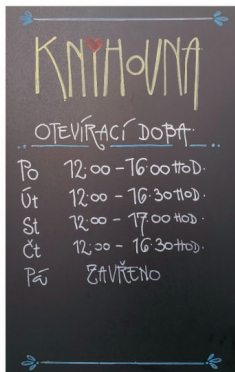 KNIHOVNA
OTEVÍRACÍ DOBA
Po 12:00 - 16:00 HOD.
Út 12:00 - 16:30 HOD.
St 12:00 - 17:00 HOD.
Čt 12:00 - 16:30 HOD.
Pá ZAVŘENO